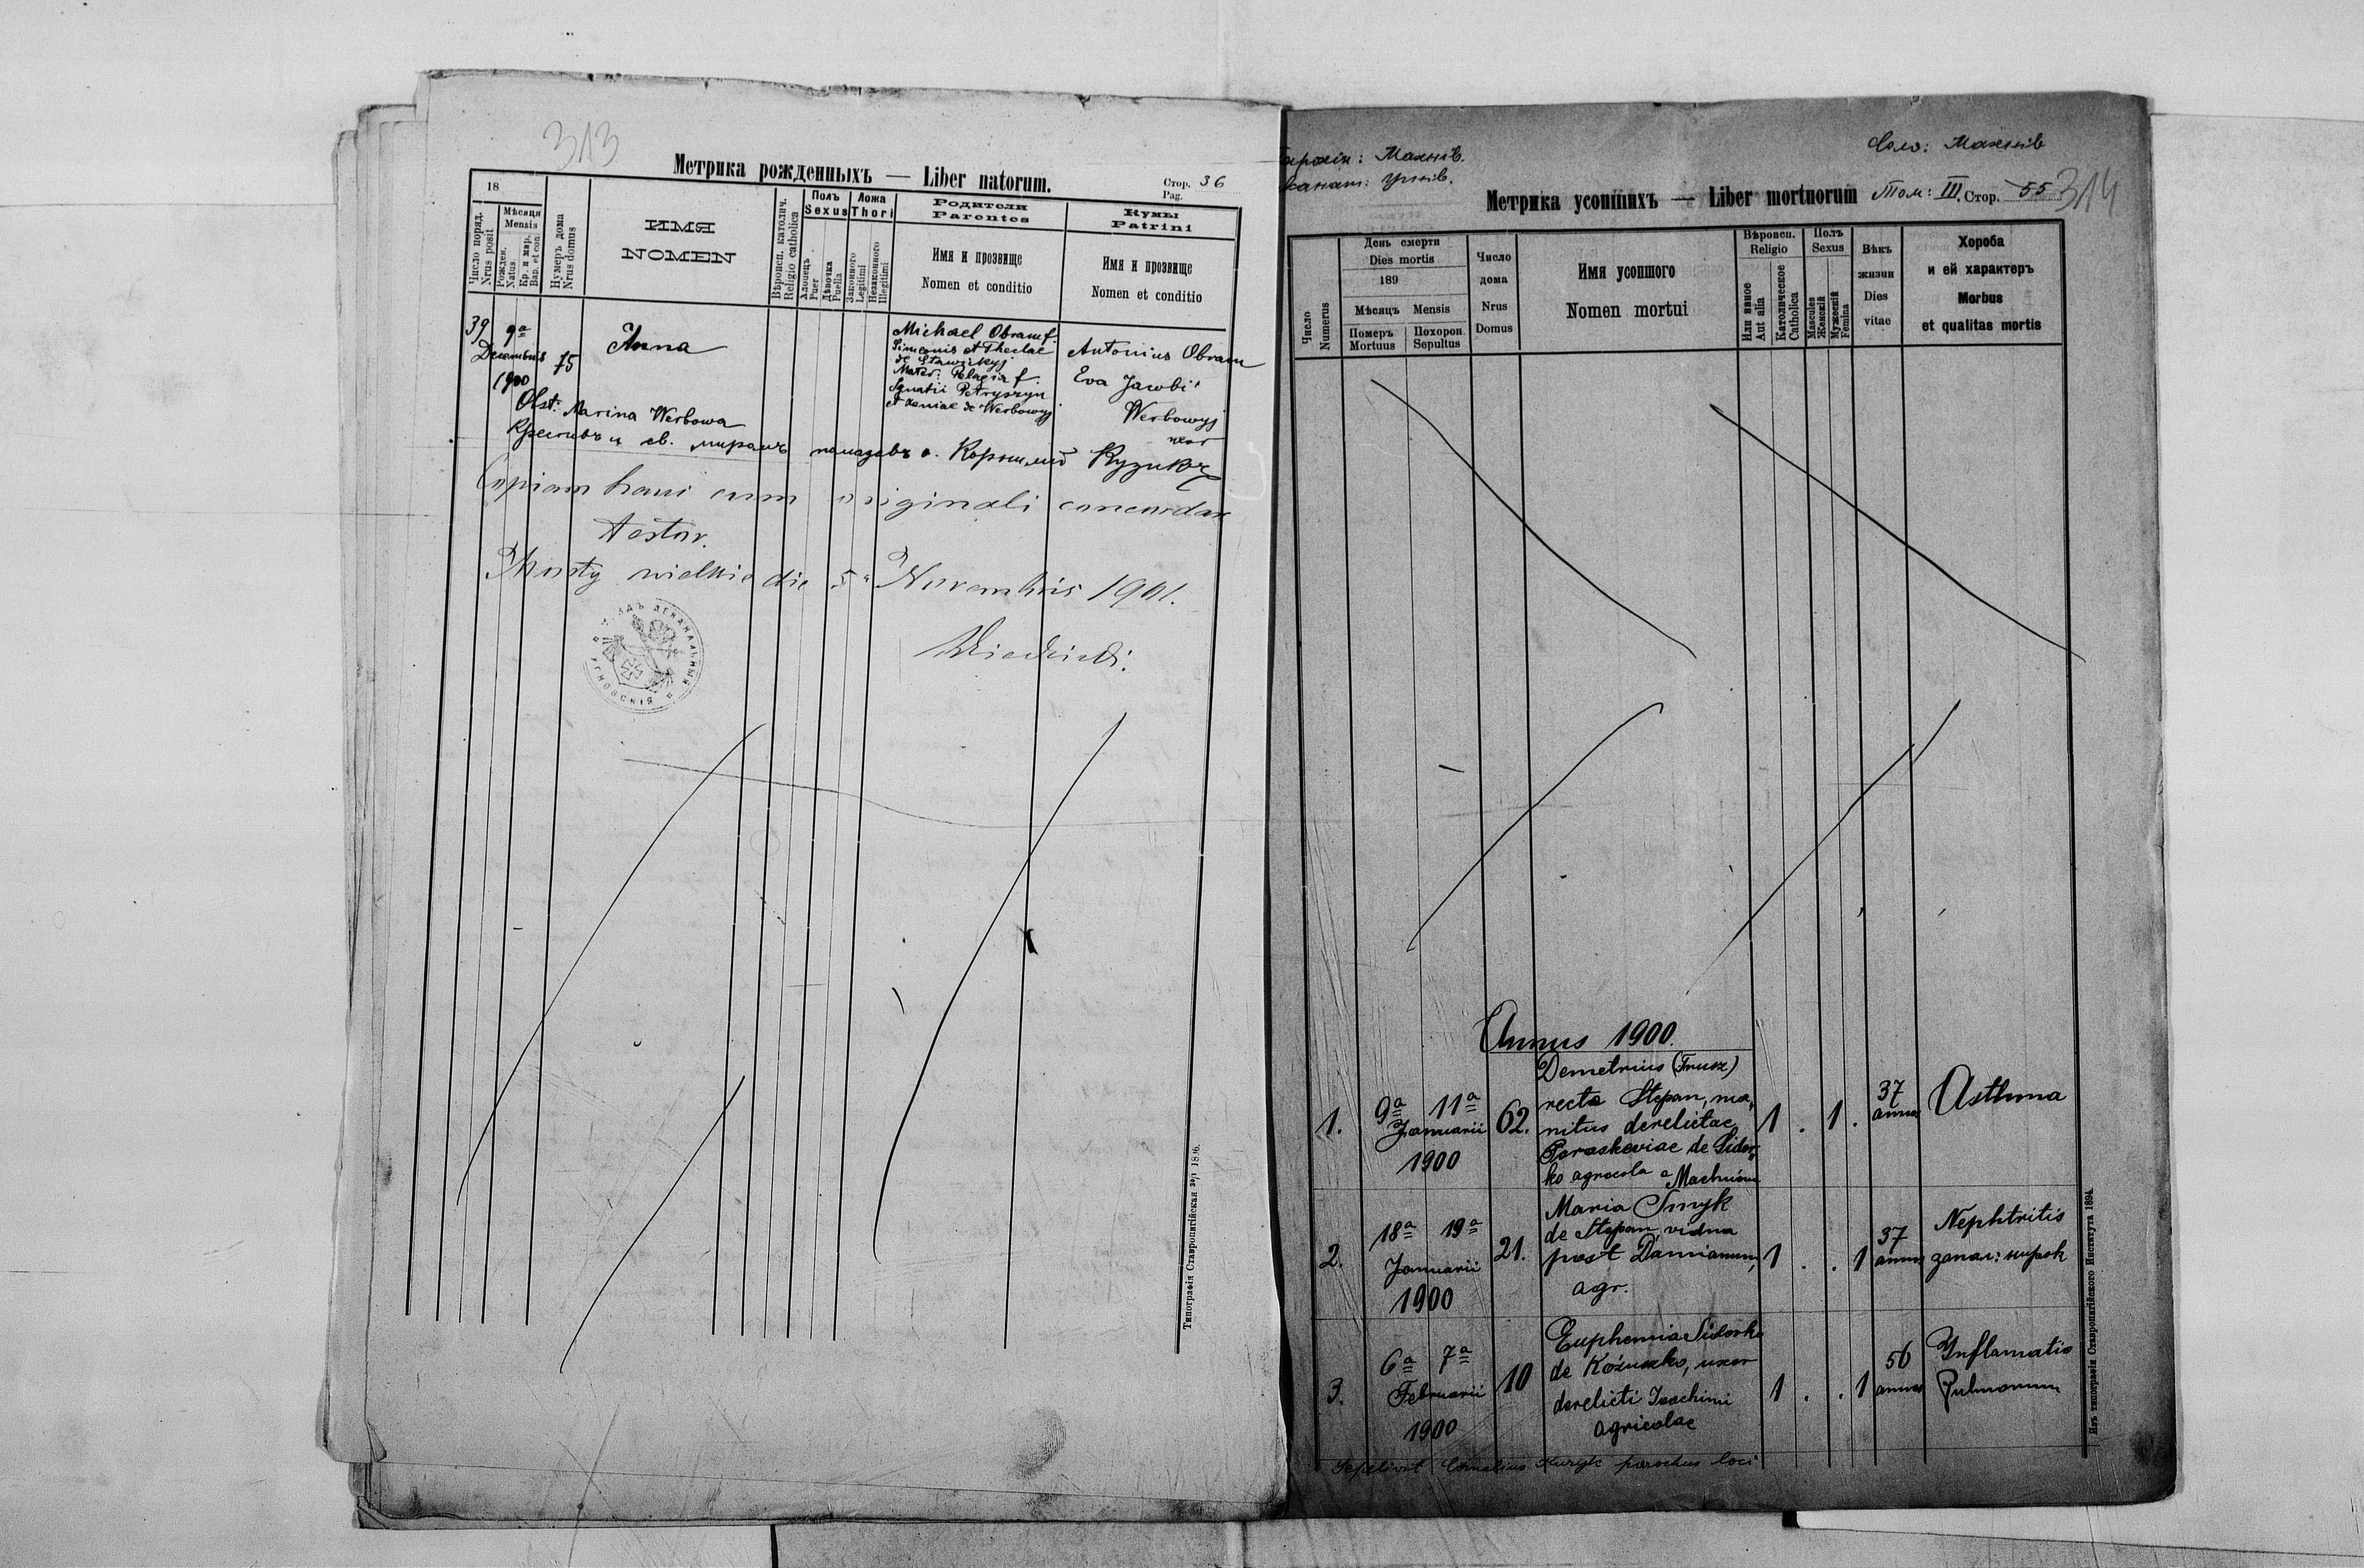 313
Метрика рожденныхъ — Liber natorum.
Стор. 36
Pag.
18
Число поряд.
Nrus posit
Мѣсяця
Mensis
Рожден.
Natus
Кр. и мѵр.
Bap. et con
Нумеръ дома
Nrus domus
ИМЯ
NOMEN
Вѣроисп. католич.
Religio catholica
Полъ
Sexus
Хлопецъ
Puer
Дѣвочка
Puella
Ложа
Thori
Законного
Legitimi
Незаконного
Illegitimi
Родители
Parentes
Имя и прозвище
Nomen et conditio
Кумы
Patrini
Имя и прозвище
Nomen et conditio
39
9ª
Decembris
1900
75
Anna
Michael Obram f.
Simeonis et Theclae
de Stawickyj
Mater: Pelagia f.
Ignatii Petryszyn
et Xeniae de Werbowyj
Antonius Obram
Eva Jacobi
Werbowyj
uxor
Obst: Marina Werbowa
Крестивъ и св. миромъ помазавъ о. Корнилій Кузикъ
Copiam hanc cum originali concordare
testor.
die 5ª Novembris 1901.
Типографія Ставропигійская
Махнів.
Угнів.
Село: Махнів
Метрика усопшихъ — Liber mortuorum Том: III. Стор. 55
314
Число
Numerus
День смерти
Dies mortis
189
Мѣсяцъ Mensis
Померъ
Mortuus
Похорон.
Sepultus
Число
дома
Nrus
Domus
Имя усопшого
Nomen mortui
Вѣроисп.
Religio
Или инное
Aut alia
Католическое
Catholica
Полъ
Sexus
Женскій
Masculus
Мужескій
Femina
Вѣкъ
жизни
Dies
vitae
Хороба
и ей характеръ
Morbus
et qualitas mortis
Annus 1900.
1.
9ª 11ª
Januarii
1900
62.
Demetrius (Trusz)
recte Stepan, ma„
ritus derelictae
Paraskeviae de Sidor„
ko agricola e Machnów
1 . 1 .
37
annos
Asthma
2.
18ª 19ª
Januarii
1900
21.
Maria Smyk
de Stepan, vidua
post Damianum,
agr.
1 . . 1
37
annos
Nephtritis
запал: нирок
3.
6ª 7ª
Februarii
1900
10
Euphemia Sidorko
de Kożuszko, uxor
derelicti Joachimi
agricolae
1 . . 1
56
annos
Inflamatio
Pulmonum
Sepelivit Cornelius Kuzyk parochus loci
Изъ типографіи Ставропигійского Института 1894.